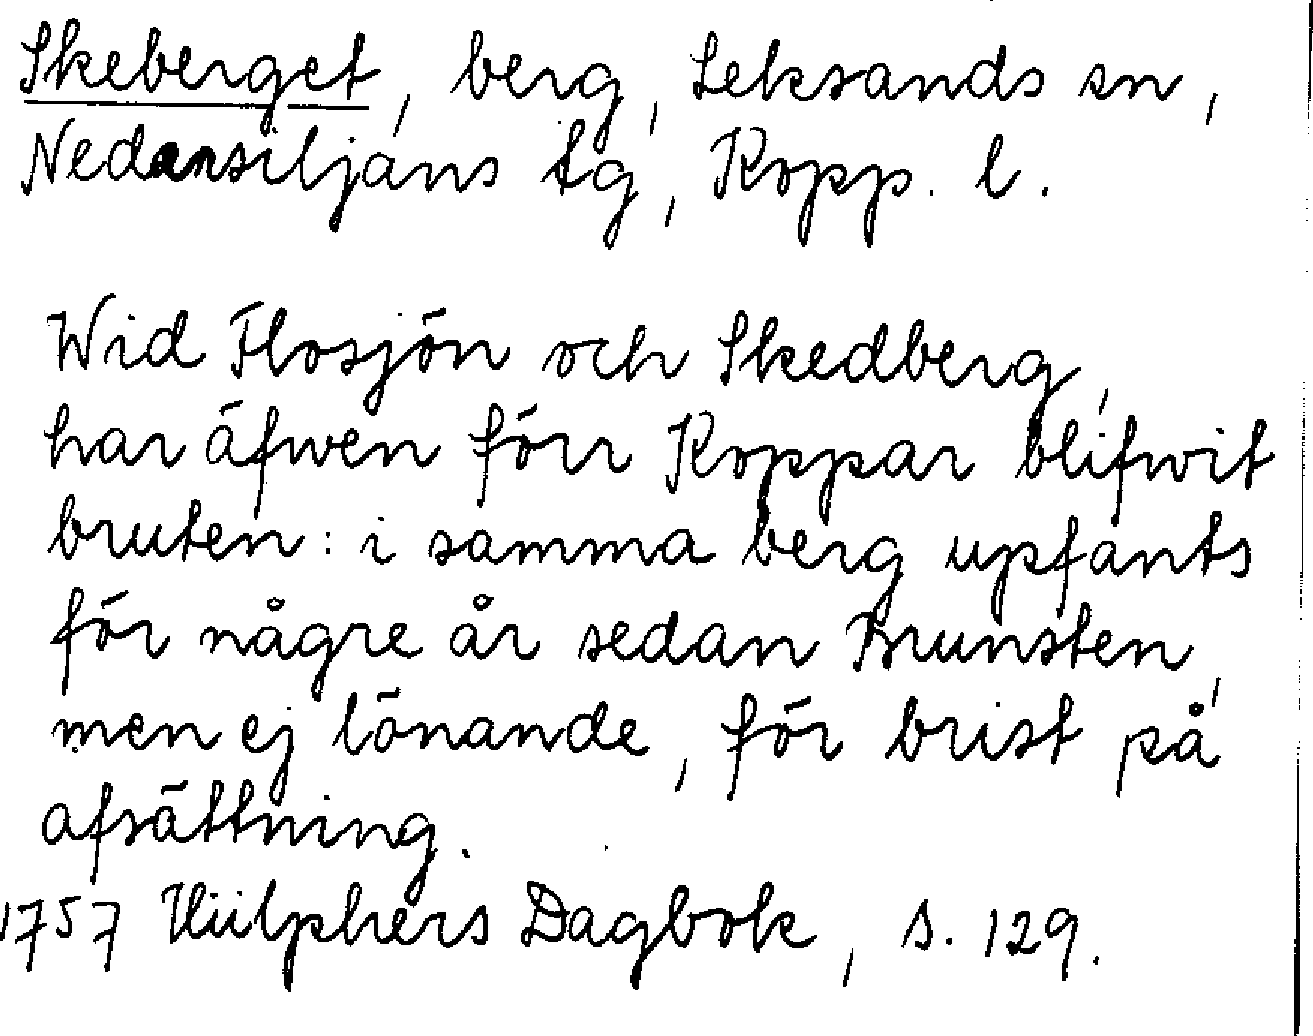 Skeberget, berg, Leksands sn,
Nedansiljans tg, Kopp. l.
Wid Flosjön och Skedberg,
har äfwen förr Koppar blifwit
bruten: i samma berg upfants
för någre år sedan Brunsten,
men ej lönande, för brist på
afsättning.
1757 Hülphers Dagbok, s. 129.